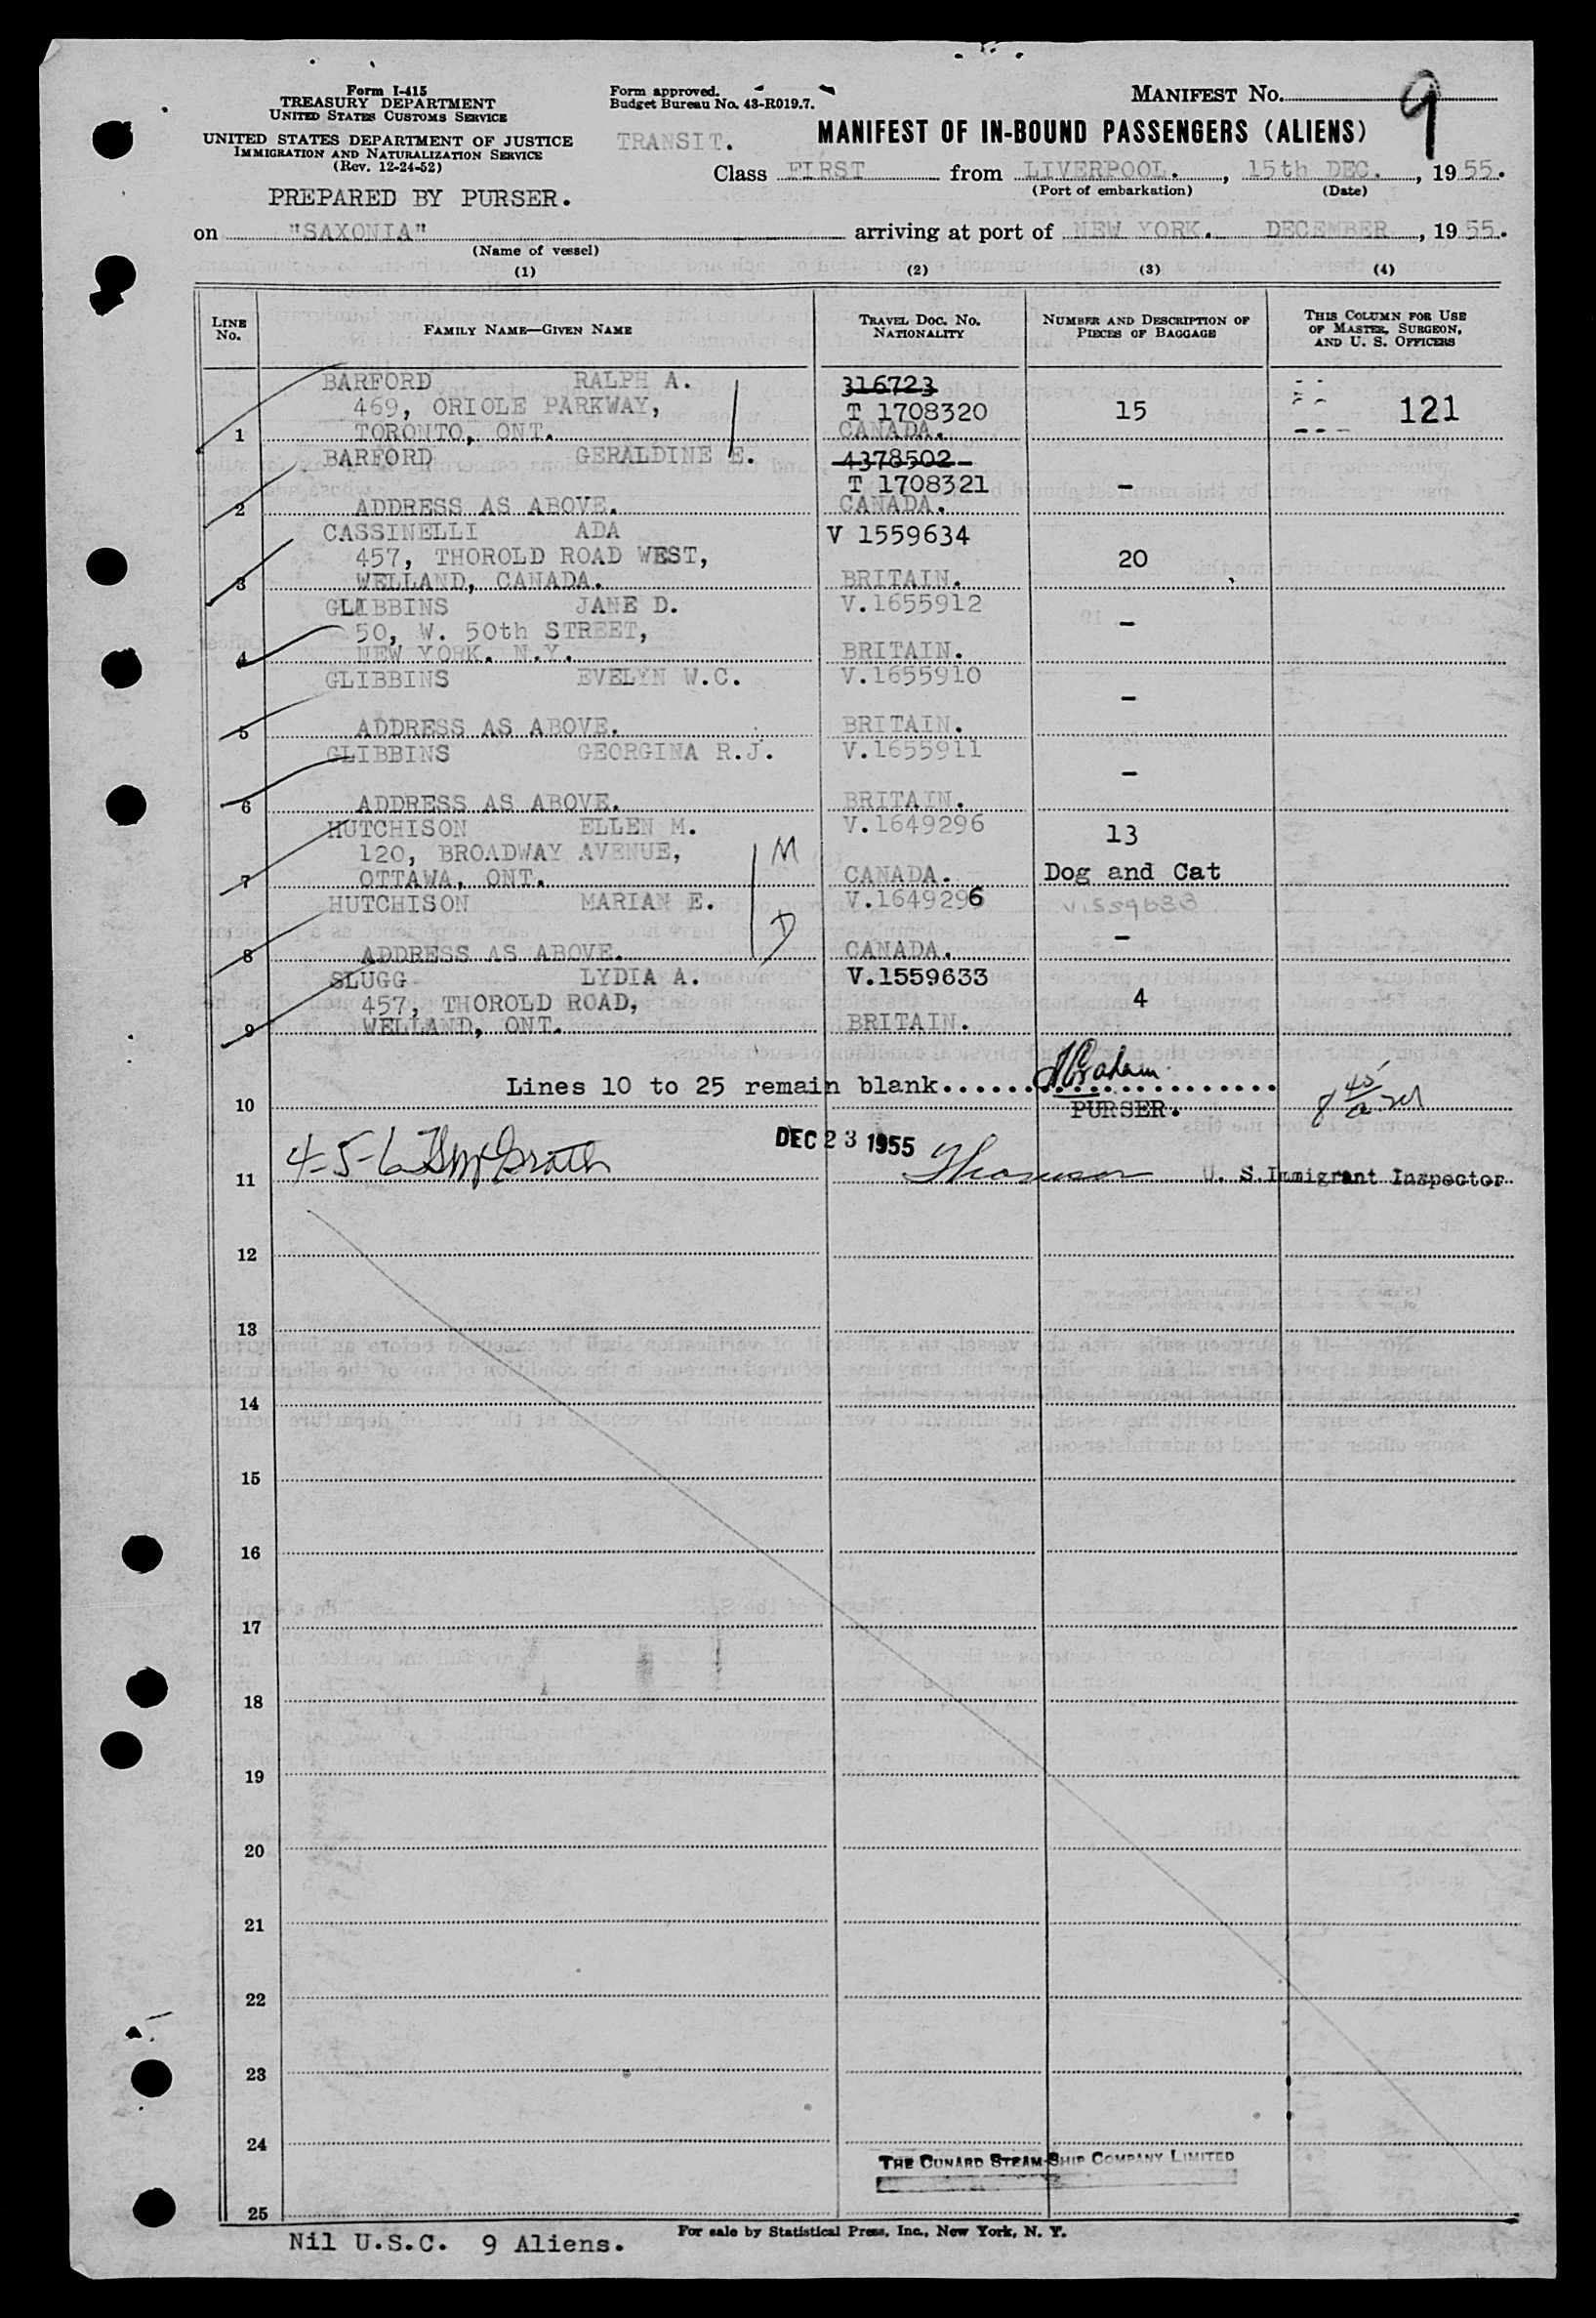 Form I-415
TREASURY DEPARTMENT
UNITED STATES CUSTOMS SERVICE
UNITED STATES DEPARTMENT OF JUSTICE
IMMIGRATION AND NATURALIZATION SERVICE
(Rev. 12-24-52)
PREPARED BY PURSER.
Form approved.
Budget Bureau No. 43-R019.7.
TRANSIT.
MANIFEST NO. 9
MANIFEST OF IN-BOUND PASSENGERS (ALIENS)
Class FIRST from LIVERPOOL. , 15th DEC. , 19 55.
(Port of embarkation) (Date)
on "SAXONIA" arriving at port of NEW YORK. DECEMBER , 19 55.
(Name of vessel)
(1) (2) (3) (4)
LINE NO. FAMILY NAME—GIVEN NAME TRAVEL DOC. NO. NATIONALITY NUMBER AND DESCRIPTION OF PIECES OF BAGGAGE THIS COLUMN FOR USE OF MASTER, SURGEON, AND U. S. OFFICERS
BARFORD RALPH A. 316723
469, ORIOLE PARKWAY, T 1708320 15 121
1 TORONTO, ONT. CANADA.
BARFORD GERALDINE E. 4378502
T 1708321 –
2 ADDRESS AS ABOVE. CANADA.
CASSINELLI ADA V 1559634
457, THOROLD ROAD WEST, 20
3 WELLAND, CANADA. BRITAIN.
GLIBBINS JANE D. V.1655912
50, W. 50th STREET, –
4 NEW YORK. N.Y. BRITAIN.
GLIBBINS EVELYN W.C. V.1655910
–
5 ADDRESS AS ABOVE. BRITAIN.
GLIBBINS GEORGINA R.J. V.1655911
–
6 ADDRESS AS ABOVE. BRITAIN.
HUTCHISON ELLEN M. V.1649296 13
120, BROADWAY AVENUE, M
7 OTTAWA, ONT. CANADA. Dog and Cat
HUTCHISON MARIAN E. V.1649296 V1559633
D –
8 ADDRESS AS ABOVE. CANADA.
SLUGG LYDIA A. V.1559633
457, THOROLD ROAD, 4
9 WELLAND, ONT. BRITAIN.
Lines 10 to 25 remain blank........................
10 PURSER.
DEC 23 1955
4-5-6 McGrath
11 U. S. Immigrant Inspector
12
13
14
15
16
17
18
19
20
21
22
23
24
THE CUNARD STEAM-SHIP COMPANY LIMITED
25
Nil U.S.C. 9 Aliens. For sale by Statistical Press, Inc., New York, N. Y.